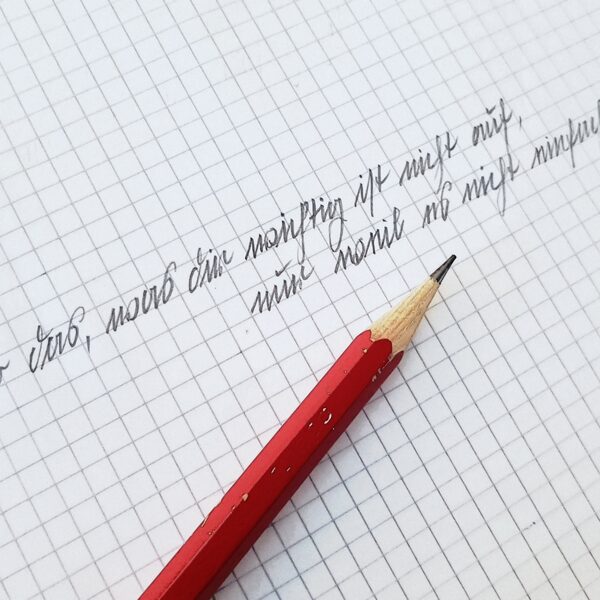 das, was dir wichtig ist nicht auf,
nur weil es nicht einfach